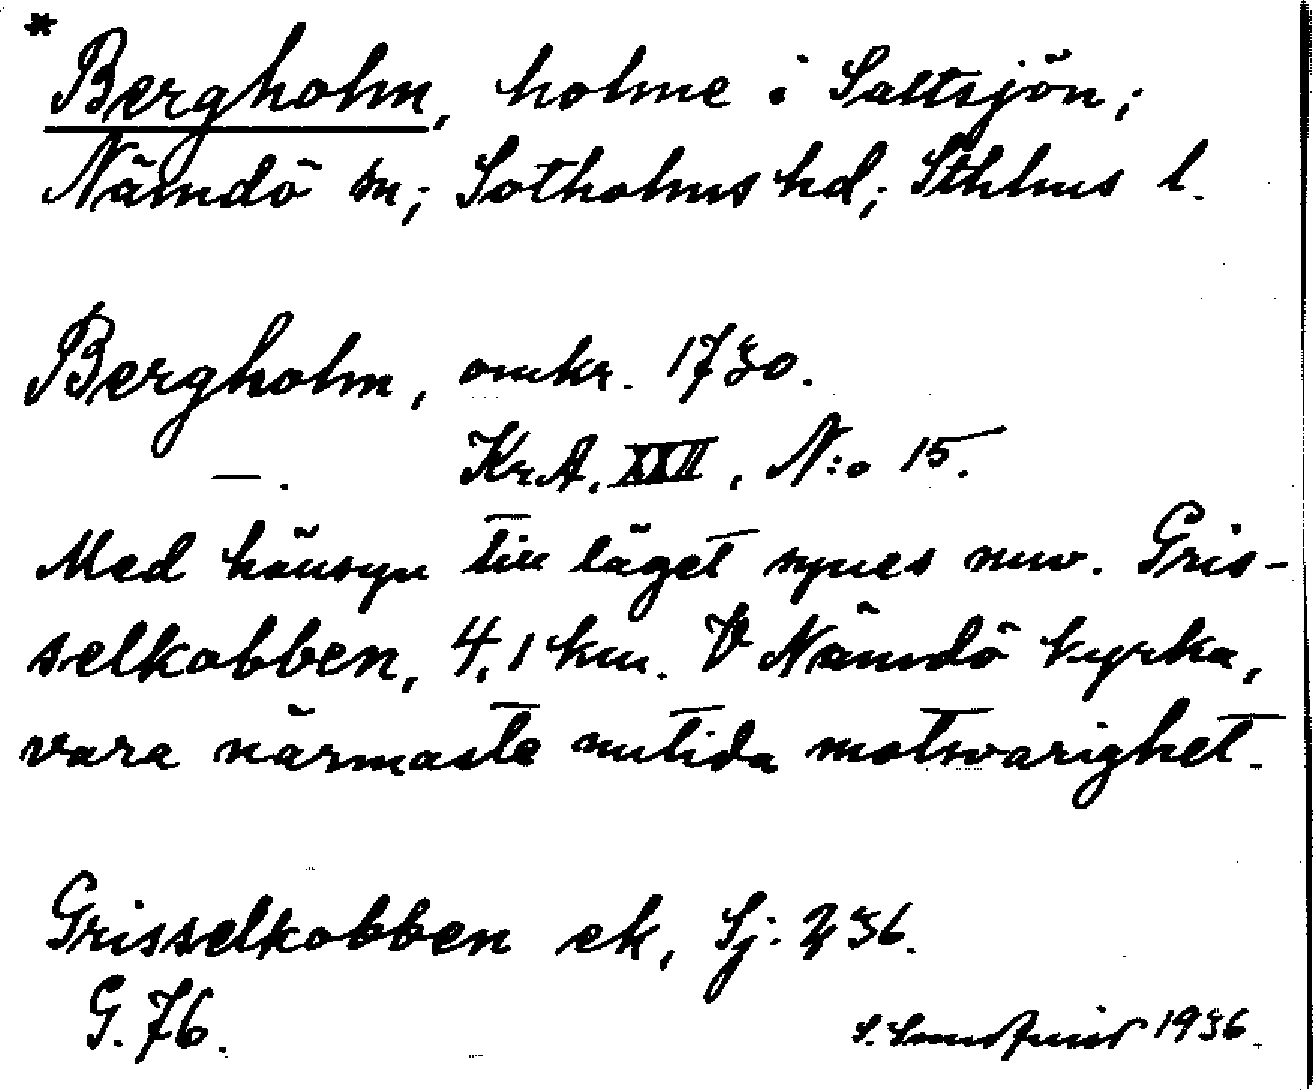 *
Bergholm, holme i Saltsjön;
Nämdö sn; Sotholms hd; Sthlms l.
Bergholm, omkr. 1730.
—. KrA. XXII, N:o 15.
Med hänsyn till läget synes nuv. Gris-
selkobben, 4,1 km. V Nämdö kyrka,
vara närmaste nutida motsvarighet.
Grisselkobben ek, Sj. 236.
G. 76.
S. 1936.